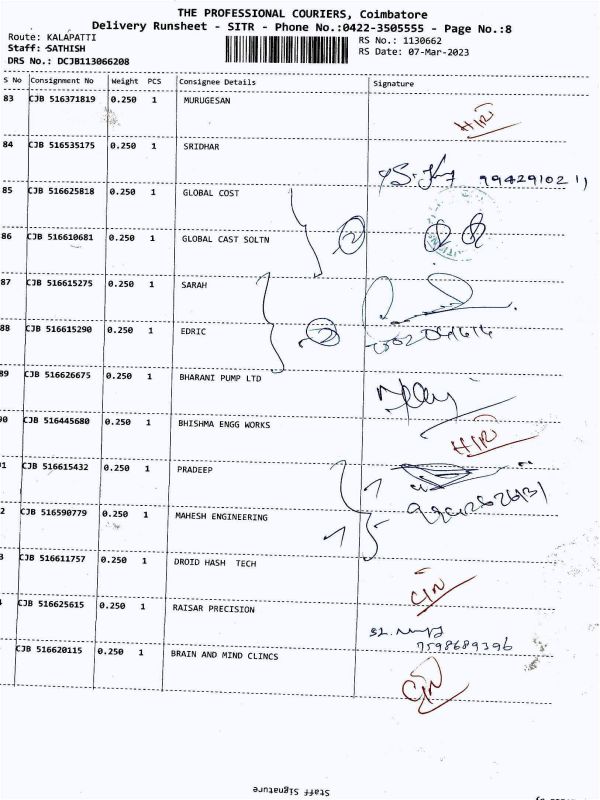 THE PROFESSIONAL COURIERS, Coimbatore
Delivery Runsheet - SITR - Phone No.:0422-3505555 - Page No.:8
Route: KALAPATTI
RS No.: 1130662
Staff: SATHISH
RS Date: 07-Mar-2023
DRS No.: DCJB113066208
S No Consignment No Weight PCS Consignee Details Signature
83 CJB 516371819 0.250 1 MURUGESAN
84 CJB 516535175 0.250 1 SRIDHAR
85 CJB 516625818 0.250 1 GLOBAL COST
86 CJB 516610681 0.250 1 GLOBAL CAST SOLTN 2
87 CJB 516615275 0.250 1 SARAH
88 CJB 516615290 0.250 1 EDRIC 2
89 CJB 516626675 0.250 1 BHARANI PUMP LTD
90 CJB 516445680 0.250 1 BHISHMA ENGG WORKS
91 CJB 516615432 0.250 1 PRADEEP
2 CJB 516590779 0.250 1 MAHESH ENGINEERING
3 CJB 516611757 0.250 1 DROID HASH TECH
CJB 516625615 0.250 1 RAISAR PRECISION
7598689396
CJB 516620115 0.250 1 BRAIN AND MIND CLINCS
Staff Signature